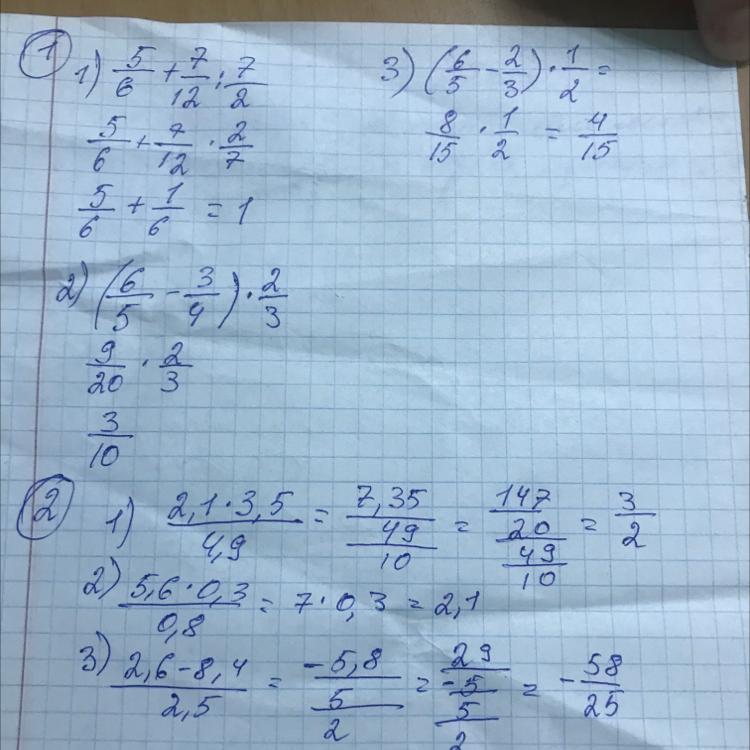 ① 1) 5/6 + 7/12 : 7/2
5/6 + 7/12 · 2/7
5/6 + 1/6 = 1
2) (6/5 - 3/4) · 2/3
9/20 · 2/3
3/10
3) (6/5 - 2/3) · 1/2 =
8/15 · 1/2 = 4/15
② 1) (2,1 · 3,5)/(4,9) = (7,35)/(49/10) = (147/20)/(49/10) = 3/2
2) (5,6 · 0,3)/(0,8) = 7 · 0,3 = 2,1
3) (2,6 - 8,4)/(2,5) = (-5,8)/(5/2) = (-29/5)/(5/2) = -58/25